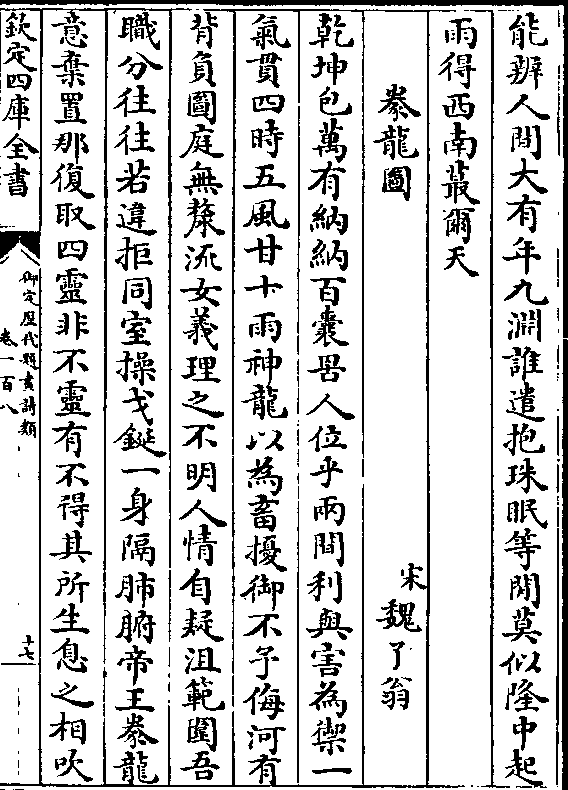 能辨人間大有年九淵誰遣抱珠眠等閒莫似隆中起
雨得西南蕞爾天
豢龍圖
宋魏了翁
乾坤包萬有納納百嚢罟人位乎兩間利與害為禦一
氣貫四時五風甘十雨神龍以為畜擾御不予侮河有
背負圖庭無漦流女義理之不明人情自疑沮範圍吾
職分往往若違拒同室操戈鋋一身隔肺腑帝王豢龍
意棄置那復取四靈非不靈有不得其所生息之相吹
欽定四庫全書
御定歴代題畫詩類
卷一百八
十七